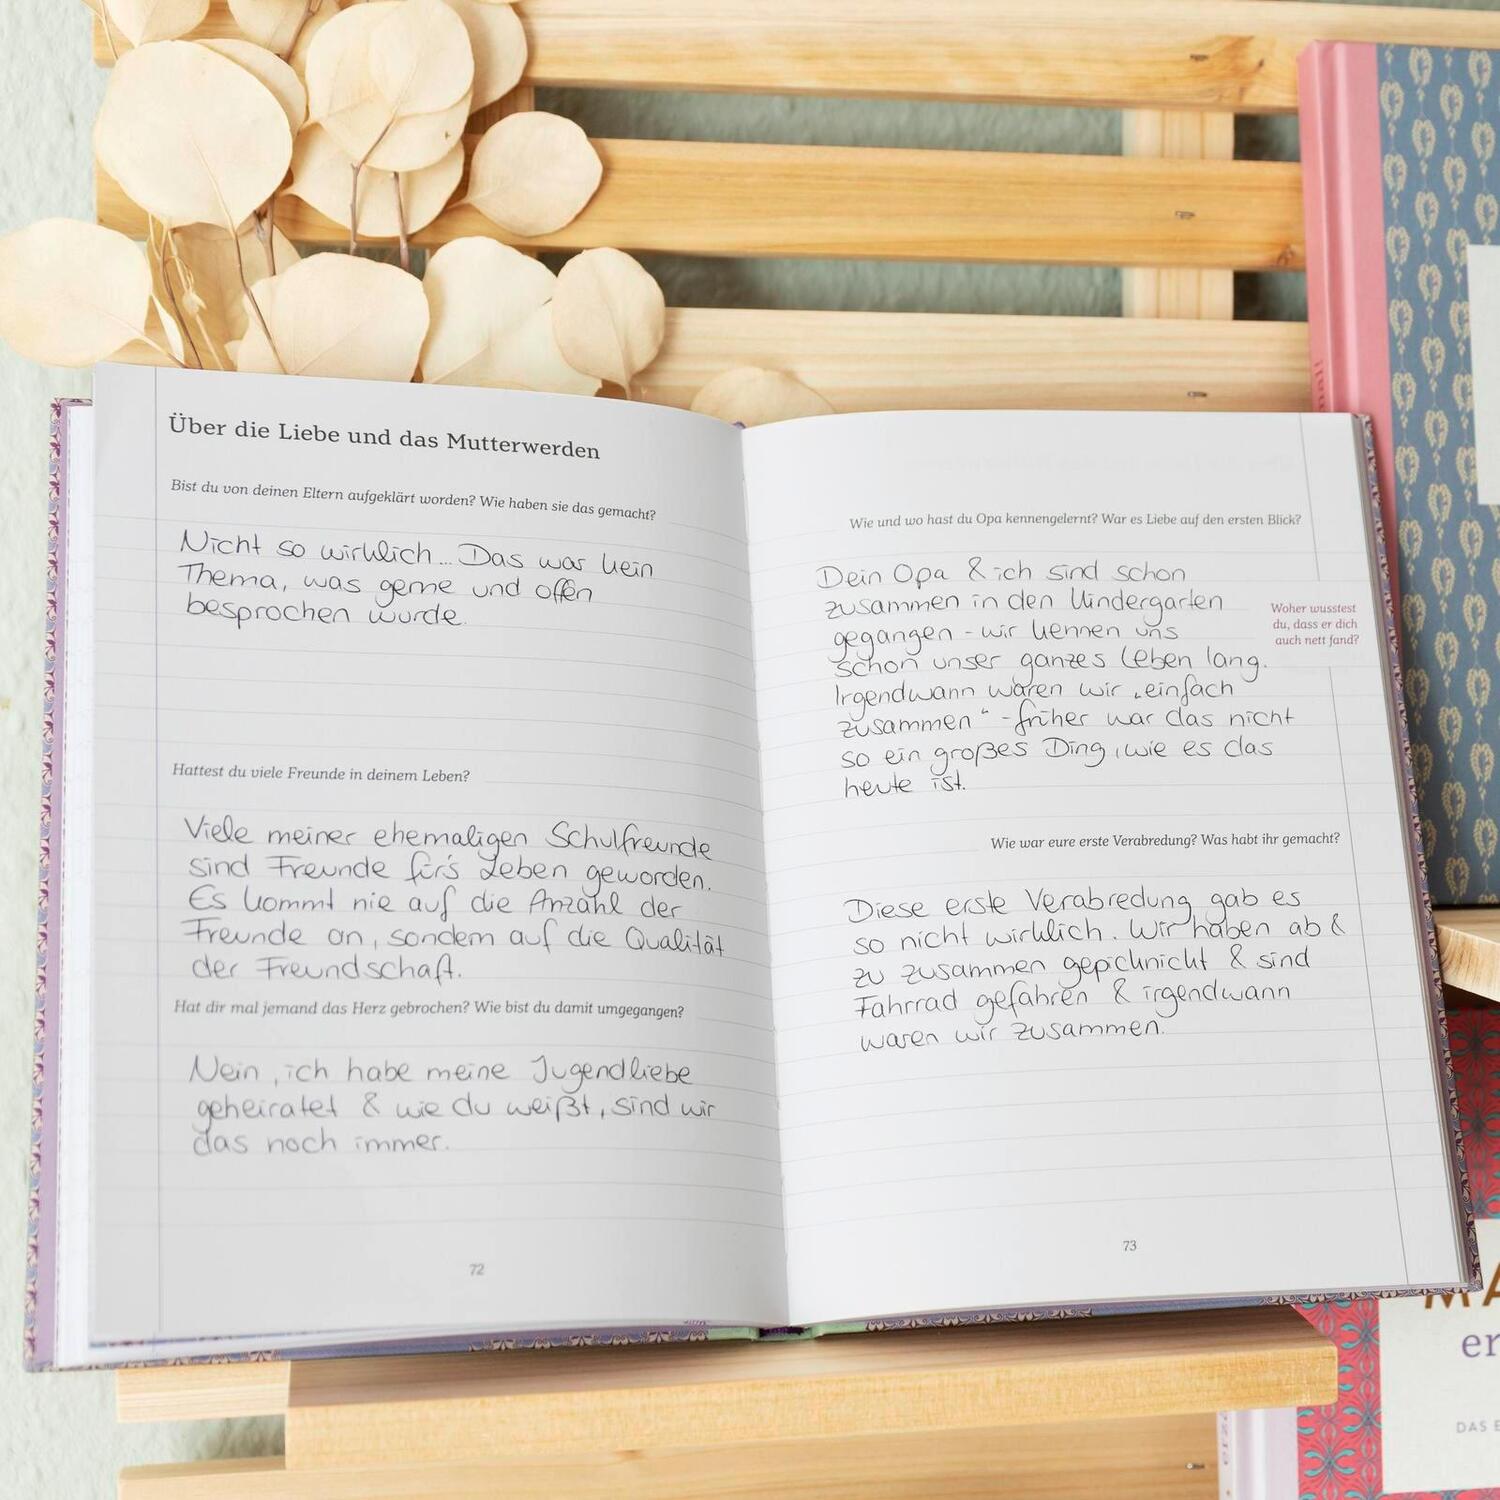 Über die Liebe und das Mutterwerden
Bist du von deinen Eltern aufgeklärt worden? Wie haben sie das gemacht?
Nicht so wirklich... Das war kein
Thema, was gerne und offen
besprochen wurde.
Hattest du viele Freunde in deinem Leben?
Viele meiner ehemaligen Schulfreunde
sind Freunde für's Leben geworden.
Es kommt nie auf die Anzahl der
Freunde an, sondern auf die Qualität
der Freundschaft.
Hat dir mal jemand das Herz gebrochen? Wie bist du damit umgegangen?
Nein, ich habe meine Jugendliebe
geheiratet & wie du weißt, sind wir
das noch immer.
72
Wie und wo hast du Opa kennengelernt? War es Liebe auf den ersten Blick?
Dein Opa & ich sind schon
zusammen in den Kindergarten
gegangen - wir kennen uns
schon unser ganzes Leben lang.
Irgendwann waren wir „einfach
zusammen“ - früher war das nicht
so ein großes Ding, wie es das
heute ist.
Woher wusstest
du, dass er dich
auch nett fand?
Wie war eure erste Verabredung? Was habt ihr gemacht?
Diese erste Verabredung gab es
so nicht wirklich. Wir haben ab &
zu zusammen gepicknickt & sind
Fahrrad gefahren & irgendwann
waren wir zusammen.
73
MA
er
DAS E